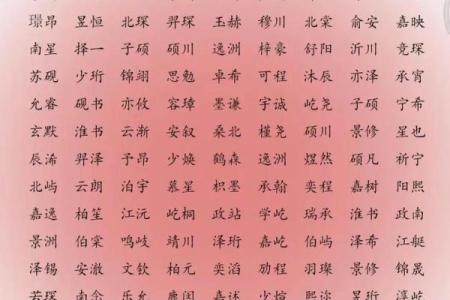 璟昂 昱恒 北琛 羿琛 玉赫 穆川 北棠 俞安 嘉映
南星 择一 子硕 硕川 逸洲 梓豪 舒阳 沂川 竞琛
苏砚 少珩 锦翊 思勉 卓希 可程 沐辰 亦泽 承宵
允睿 砚书 亦攸 容璋 墨谦 宇诚 屹尧 子硕 宁希
玄默 淮书 云渐 安叙 桑北 槿尧 硕川 景修 星也
辰浠 羿泽 予昂 少焕 鹤森 逸洲 煜然 硕凡 祈宁
北屿 云朗 泊宇 慕星 枳墨 承翰 奕程 嘉树 阳熙
嘉逸 柏笙 江沅 屹桐 政站 学屹 瑞承 淮书 政南
景洲 伯棠 鸣岐 靖川 泽珩 嘉屹 伯屿 泽希 江艇
泽锡 安澈 文钦 柏元 奕滔 励程 羽璨 景修 锦晟